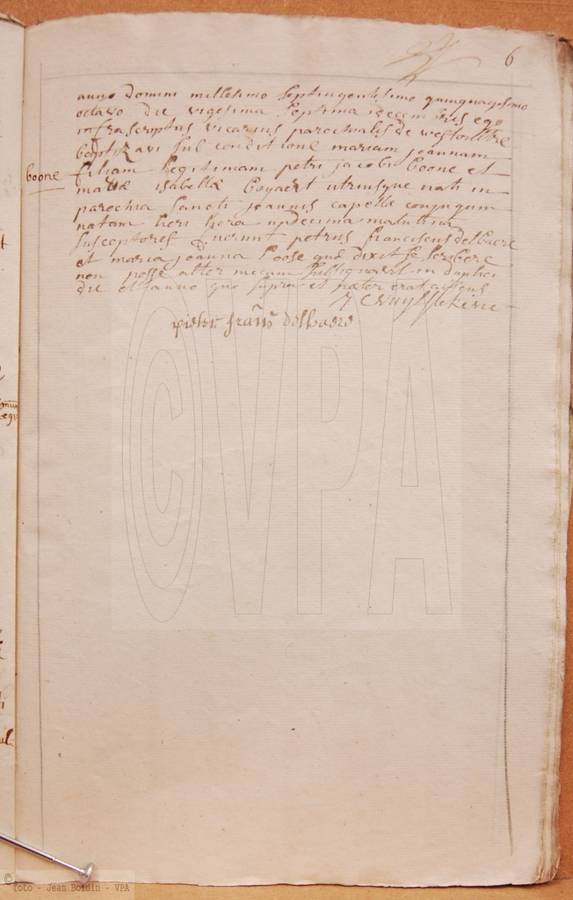 6
anno domini millesimo septingentesimo quinquagesimo
octavo die vigesima septima decembris ego
infrascriptus vicarius parochialis de westoutre
baptizavi sub conditione mariam joannam
boone
filiam legitimam petri jacobi boone et
mariæ isabellæ boyaert utriusque nati in
parochia sancti joannis capelle conjugum
natam heri hora undecima matutina
susceptores fuerunt petrus franciscus delbaere
et maria joanna Loose quæ dixit se scribere
non posse alter mecum subsignavit in duplici
die et anno quo supra et pater erat
pieter frans delbaere
©VPA
© foto - Jean Boidin - VPA